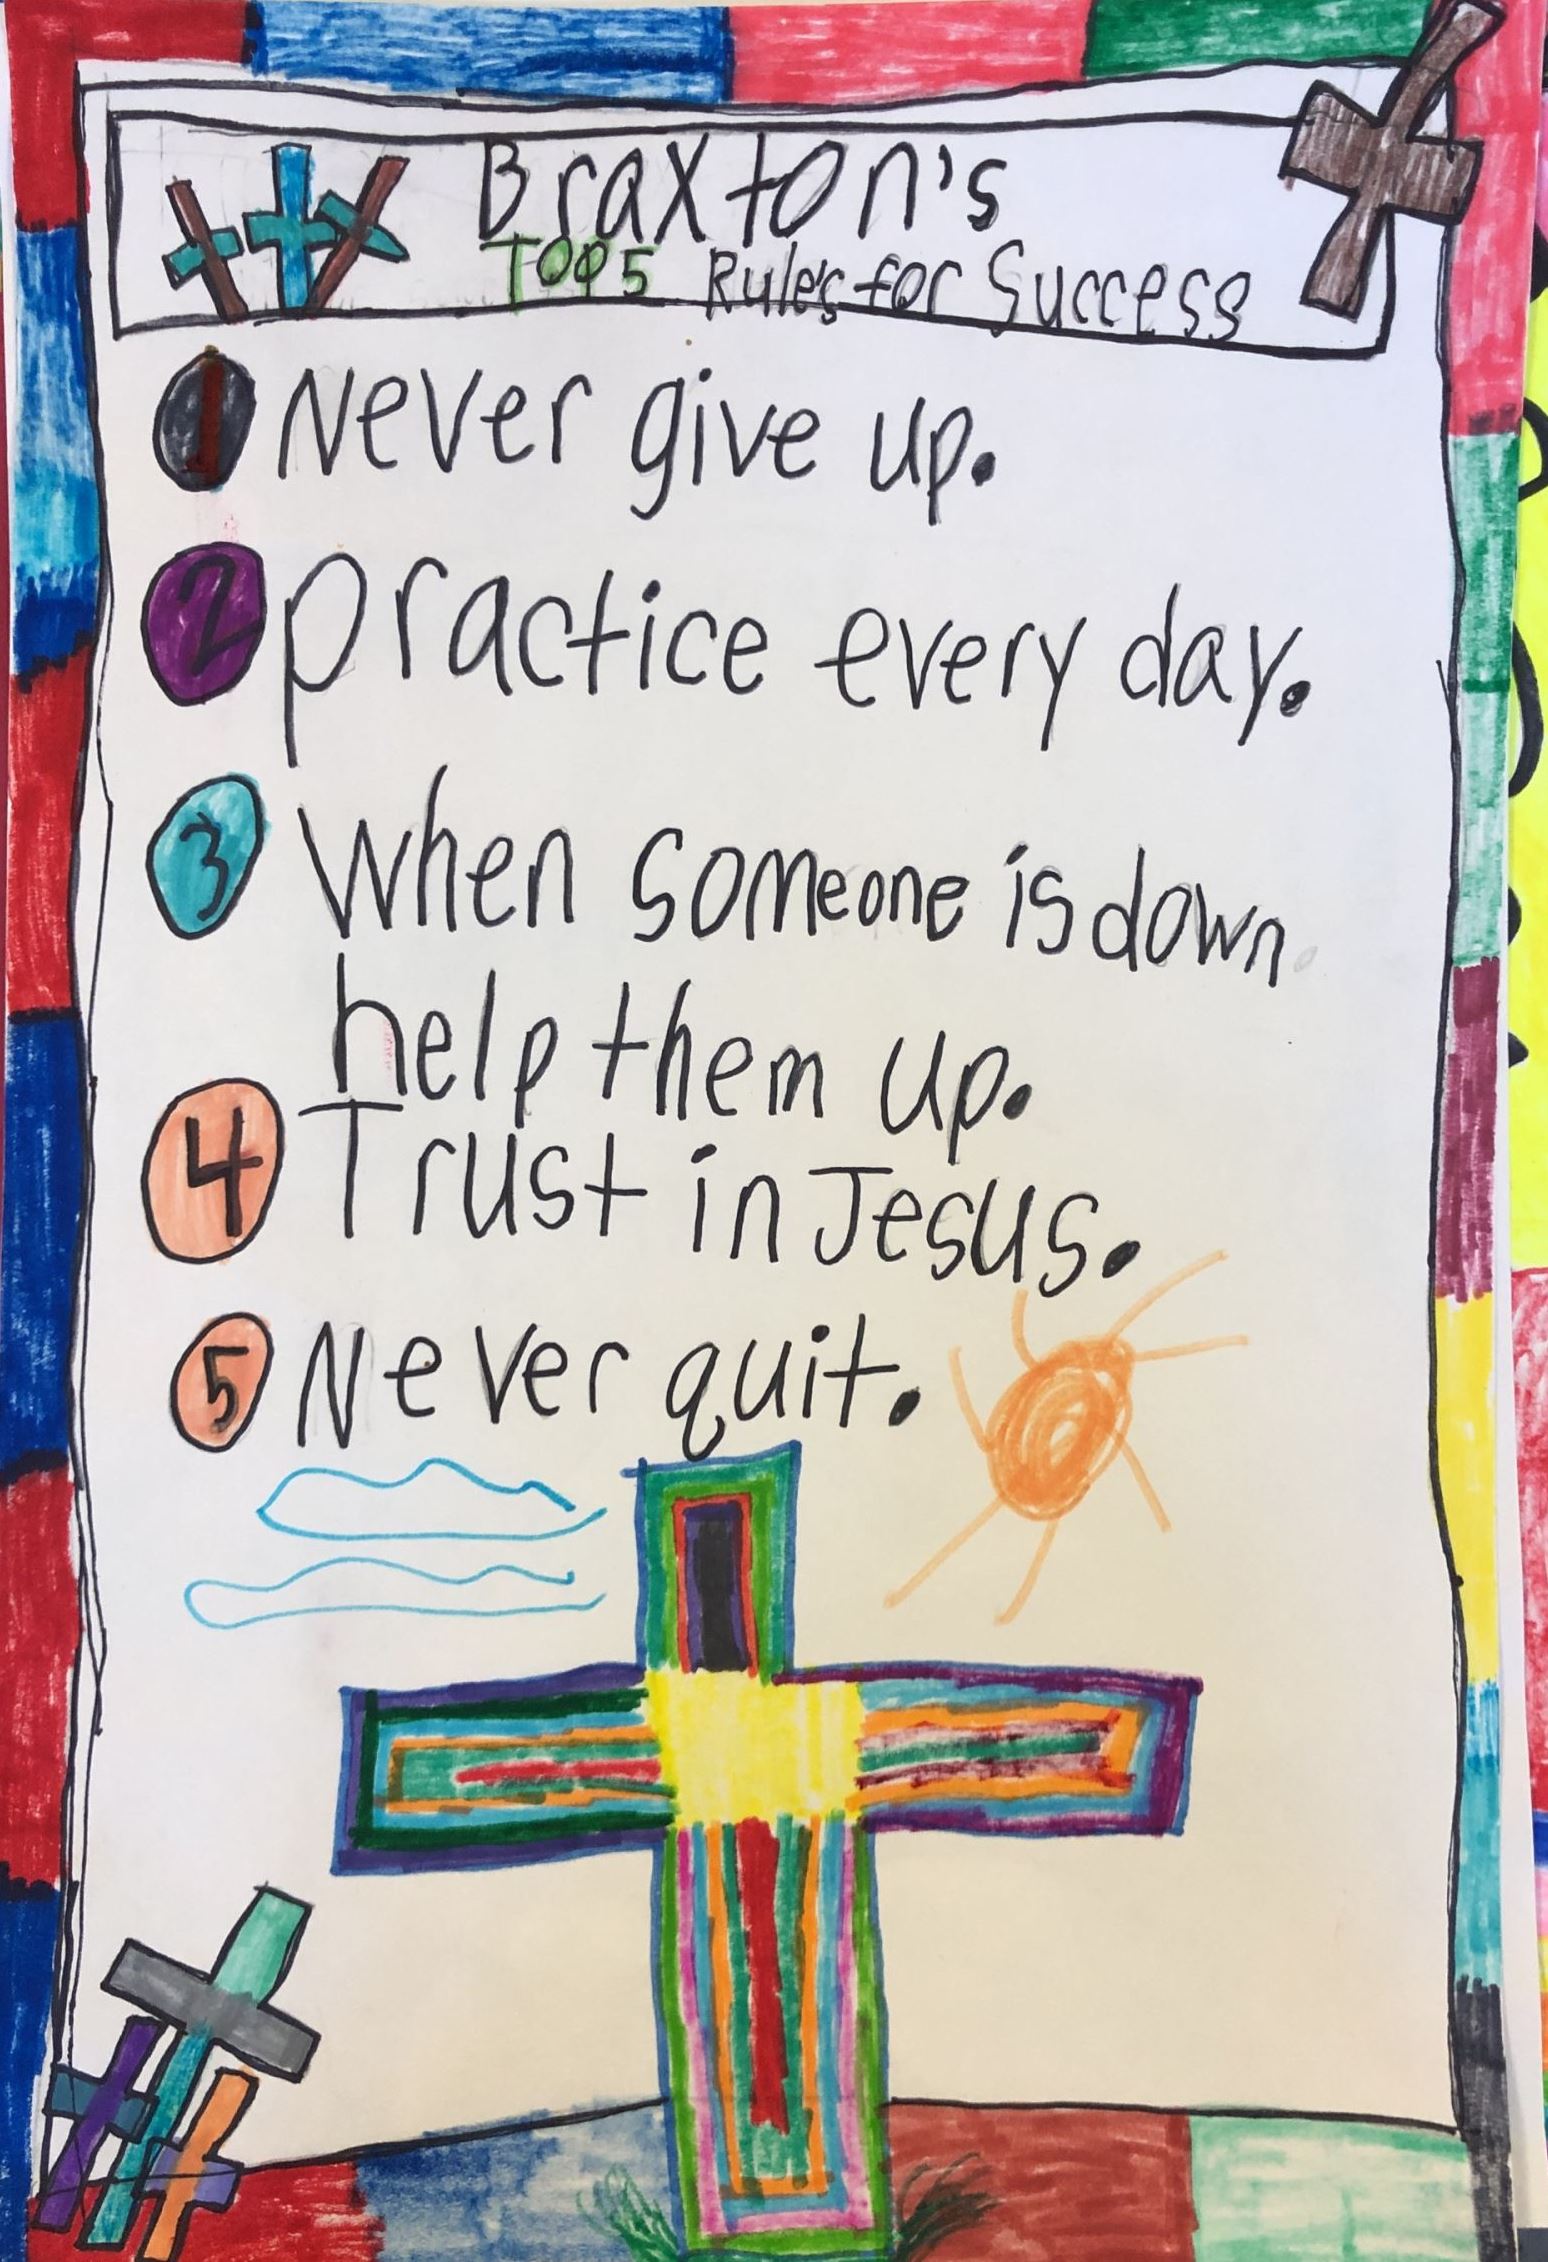 Braxton's
TOP 5 Rules for Success
1 Never give up.
2 practice every day.
3 When someone is down
help them up.
4 Trust in Jesus.
5 Never quit.